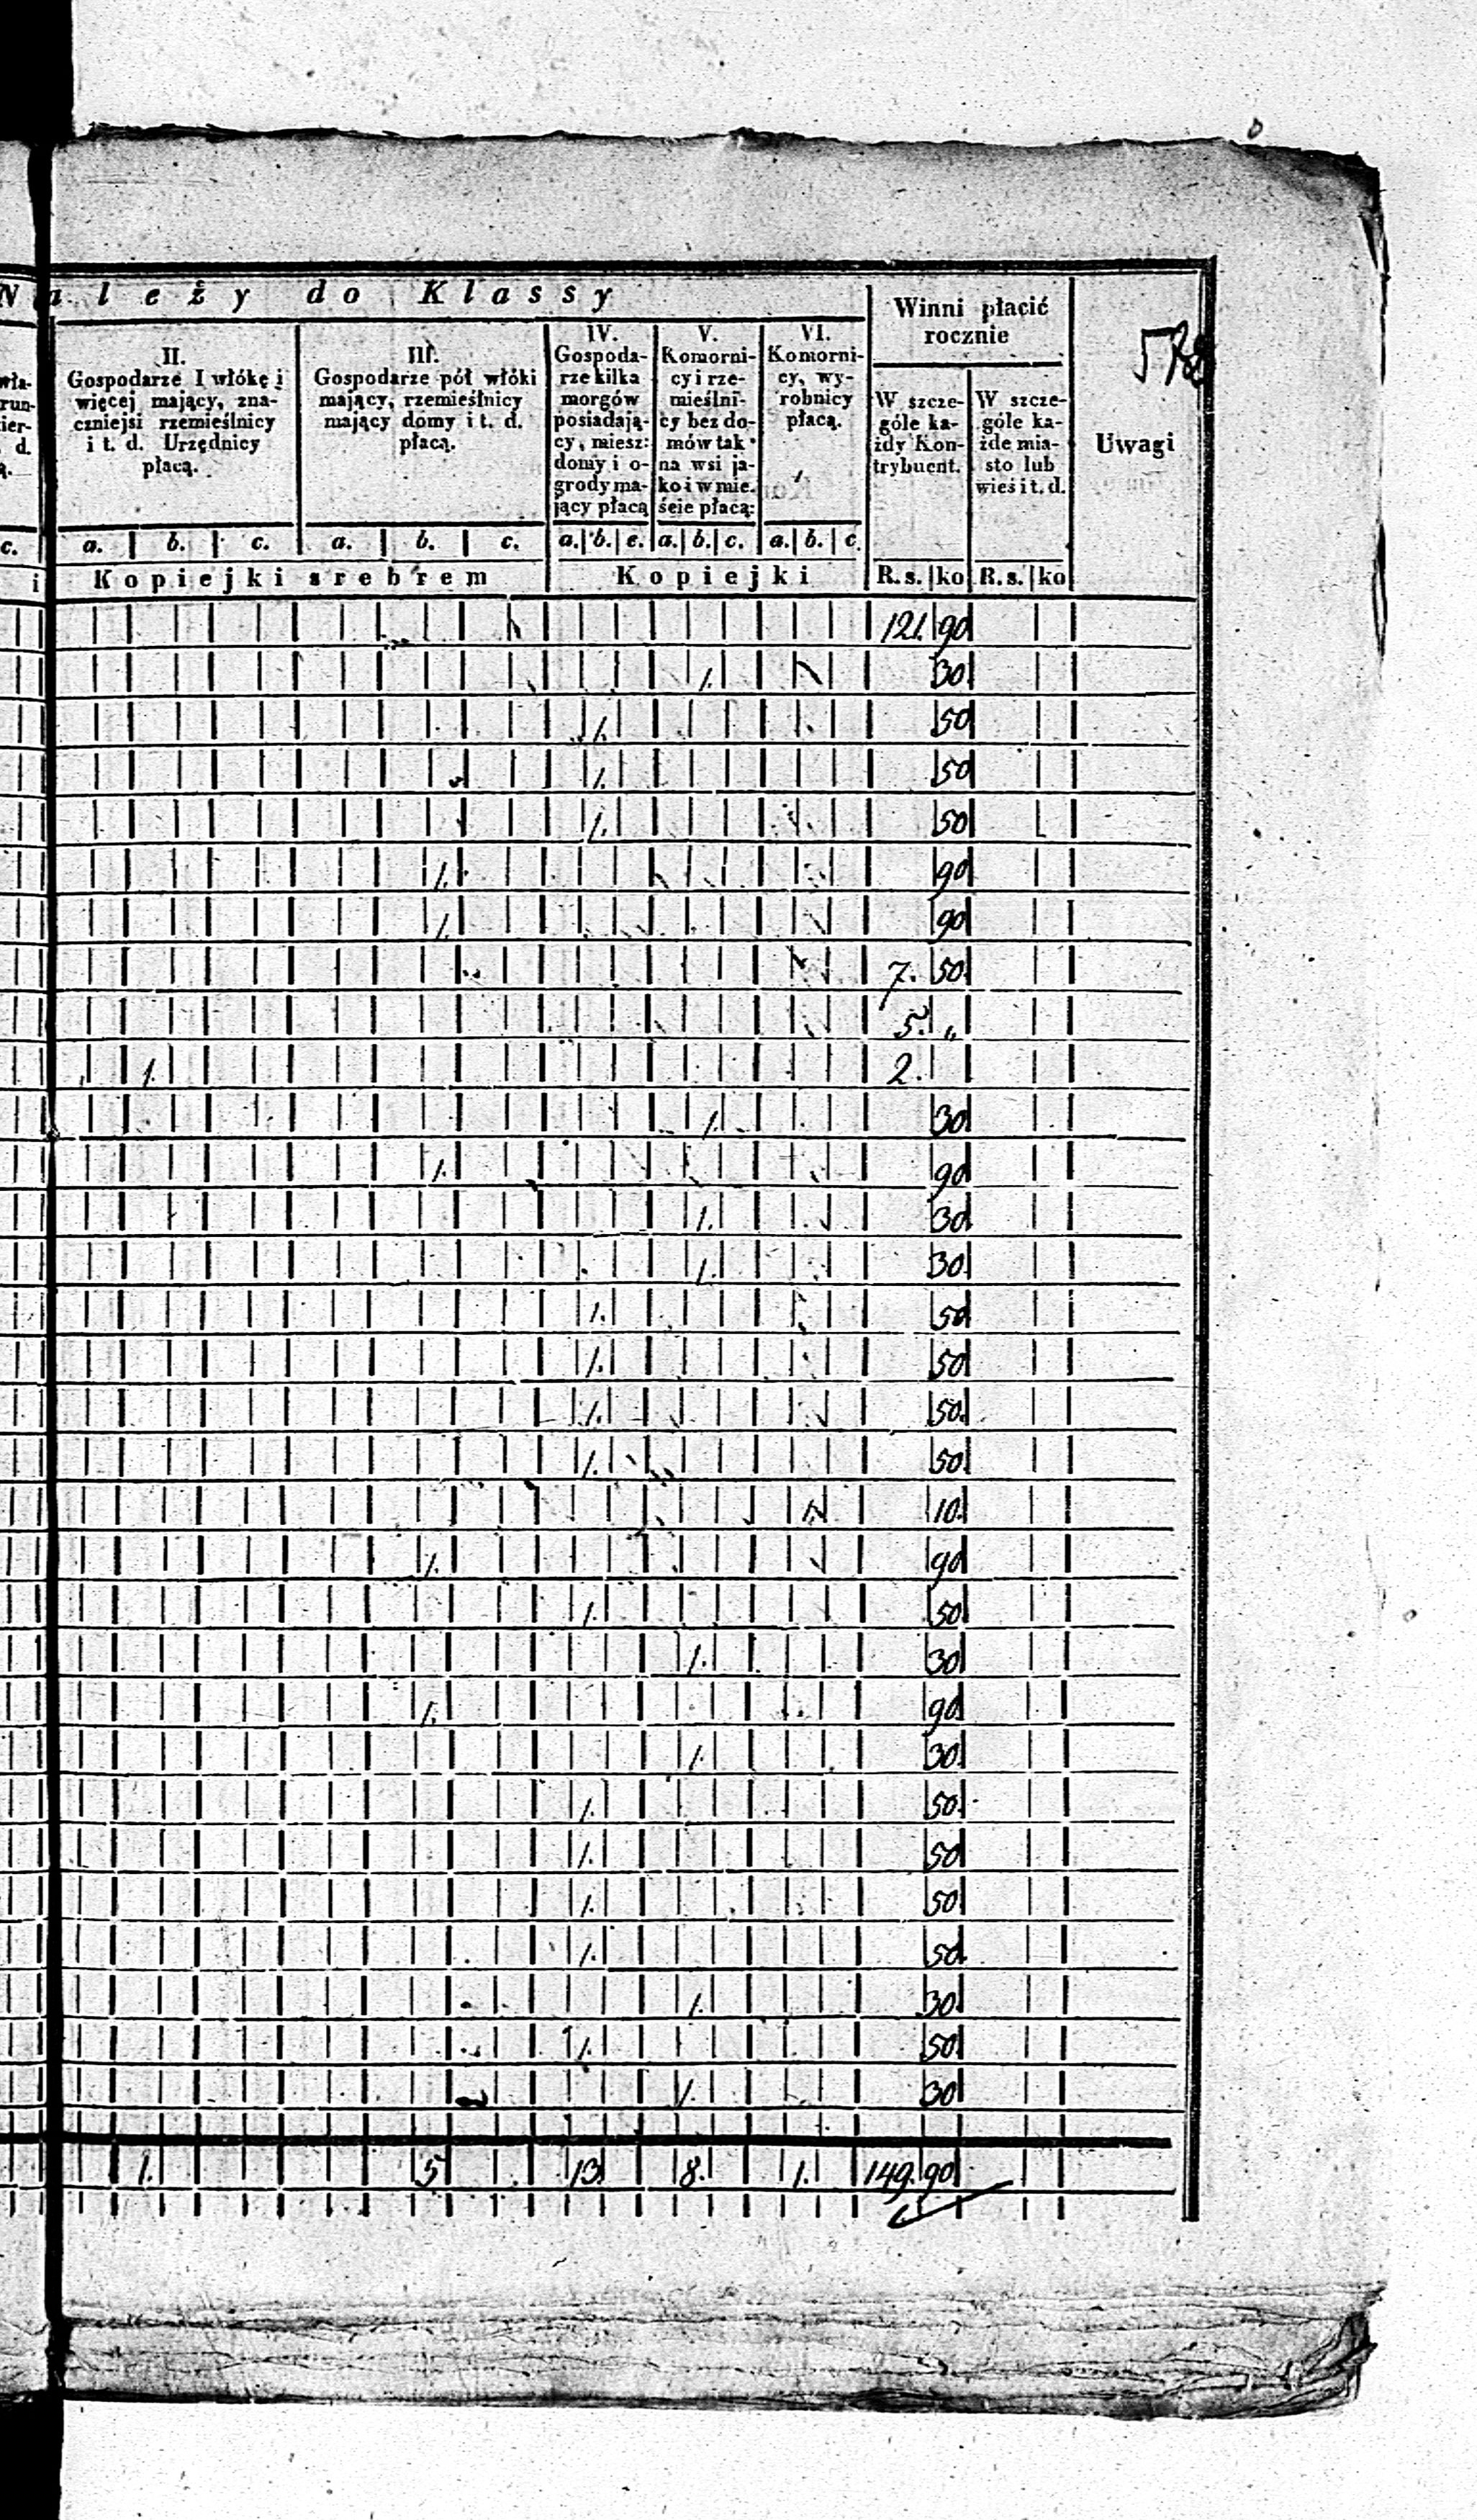 Należy do Klassy
Winni płacić rocznie
Uwagi
II.
Gospodarze I włókę i
więcej mający, zna-
czniejsi rzemieślnicy
i t. d. Urzędnicy
płacą.
III.
Gospodarze pół włóki
mający, rzemieślnicy
mający domy i t. d.
płacą.
IV.
Gospoda-
rze kilka
morgów
posiadają-
cy, miesz:
domy i o-
grody ma-
jący płacą
V.
Komorni-
cy i rze-
mieślni-
cy bez do-
mów tak
na wsi ja-
ko i w mie-
ście płacą:
VI.
Komorni-
cy, wy-
robnicy
płacą.
W szcze-
góle ka-
żdy Kon-
trybuent.
W szcze-
góle ka-
żde mia-
sto lub
wieś i t. d.
c. a. b. c. a. b. c. a. b. c. a. b. c. a. b. c.
i Kopiejki srebrem Kopiejki R.s. ko R.s. ko
121. 90
1. 30.
1. 50
1. 50
1. 50
1. 90
1. 90
7. 50.
5. „
1. 2.
1. 30
1. 90
1. 30
1. 30
1. 50
1. 50
1. 50.
1. 50
10.
1. 90
1. 50
1. 30
1. 90
1. 30.
1. 50.
1. 50
1. 50
1. 50.
1. 30
1. 50
1. 30
1. 5 13. 8. 1. 149. 90